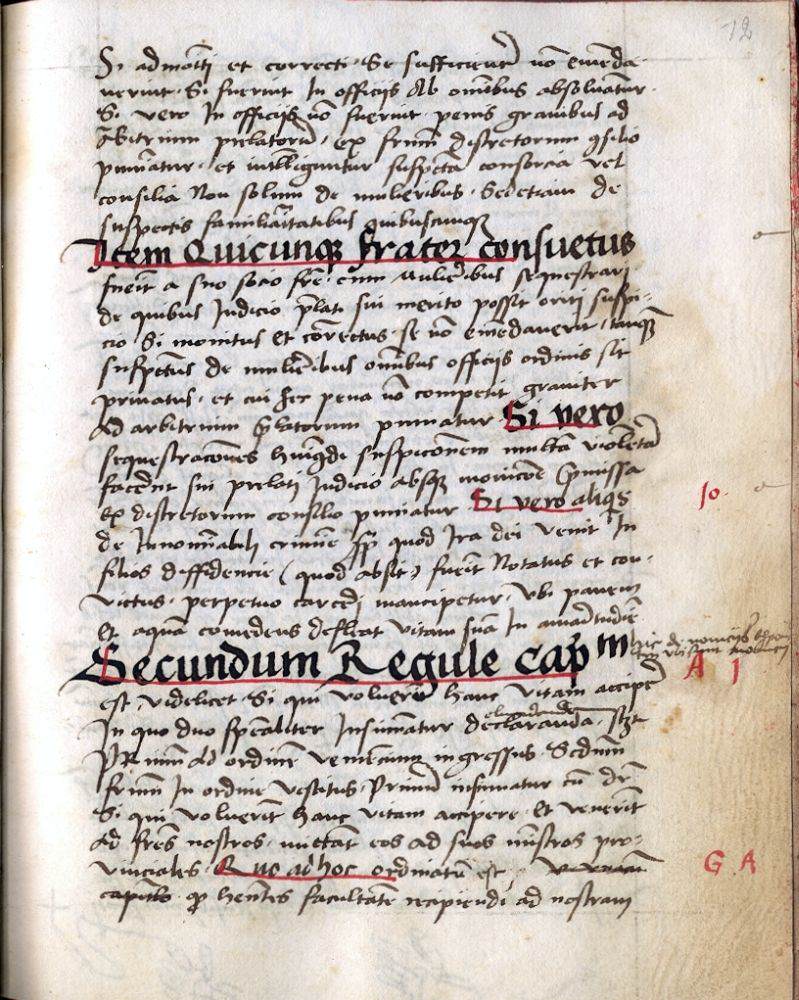 12
Si admoiti et correcti Se sufficient͛ nō emēda-
verint. Si fuerint In officijs Ab omībus absolvātur.
Si vero In officijs nō fuerint penis gravibus ad
Arbitrium prelatorū, ex frūm discretorum ɔsilio
puniātur, et intelliguntur suspecta consorcia vel
consilia Non solum de mulieribus. Sedetiam de
suspectis familiaītatibus quibuscunqꝫ
Item Quicunqꝫ frater consuetus
fueīt a suo socio fr̄e cum mulieribus sequestrari
de quibus Judicio p̄lati sui merito possit oriri suspi-
cio Si monitus et correctus se nō emēdaverit, tanqꝫ
suspectus de mulieribus omībus officijs ordinis sit
privatus, et cui hec pena nō competit graviter
Ad arbitrium p̄latorum puniatur Si vero
sequestracōnes huiusdi suspiconem multā violētā
facērit sui prelati Judicio absqꝫ monicōe p̄missa
ex discretorum consilio puniatur Si vero aliqs
Jo.
de Innominabili crimīe, quod Ira dei venit In
filios diffidencie (quod absit) fueīt Notatus et con-
victus, perpetuo carceri mancipetur, ubi panem
Et aquā comedens defleat vitam suā In amaritudīe
Secundum Regule capᵐ
hic de novicijs
A J
est, videlicet Si qui voluerīt hanc vitam accipe͛
In quo duo sp̄ealiter Insinuātur declaranda. scꝫt
PRimum Ad ordinē venienciūm ingressus. Scdm̄
frūm In ordine vestitus. Primū insinuatur cū dr̄
Si qui voluerīt hanc vitam accipere. Et venerīt
Ad fr̄es nostros, mittāt eos ad suos mīstros pro-
vinciales. Quo ad hoc ordinatū est,
G A
capitlo qꝫ hēntes facultatē recipiendi ad nostram